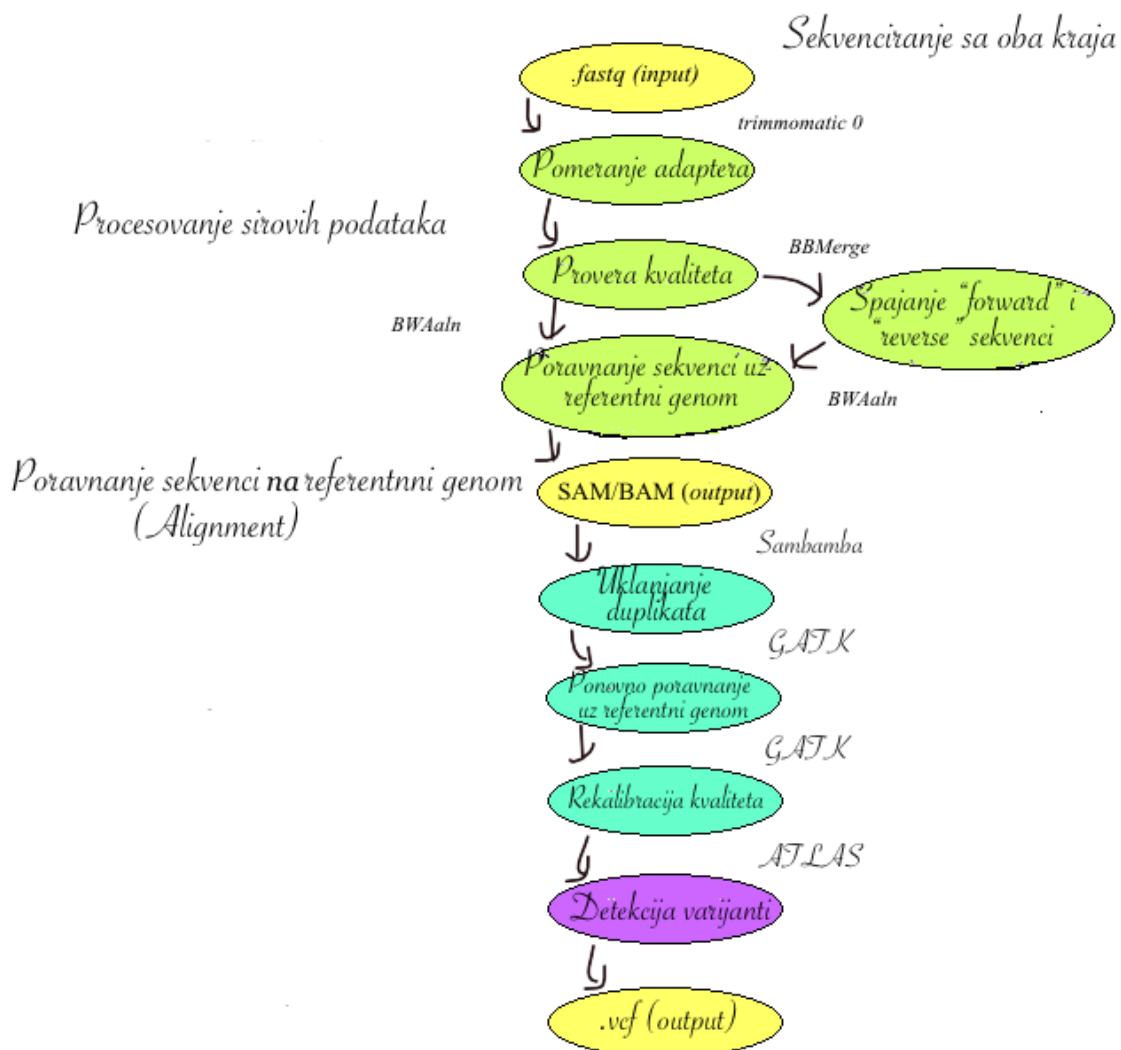 Sekvenciranje sa oba kraja
.fastq (input)
trimmomatic 0
Pomeranje adaptera
Procesovanje sirovih podataka
Provera kvaliteta
BBMerge
Spajanje “forward” i
“reverse” sekvenci
BWAaln
Poravnanje sekvenci uz
referentni genom
BWAaln
Poravnanje sekvenci na referentnni genom
(Alignment)
SAM/BAM (output)
Sambamba
Uklanjanje
duplikata
GATK
Ponovno poravnanje
uz referentni genom
GATK
Rekalibracija kvaliteta
ATLAS
Detekcija varijanti
.vcf (output)